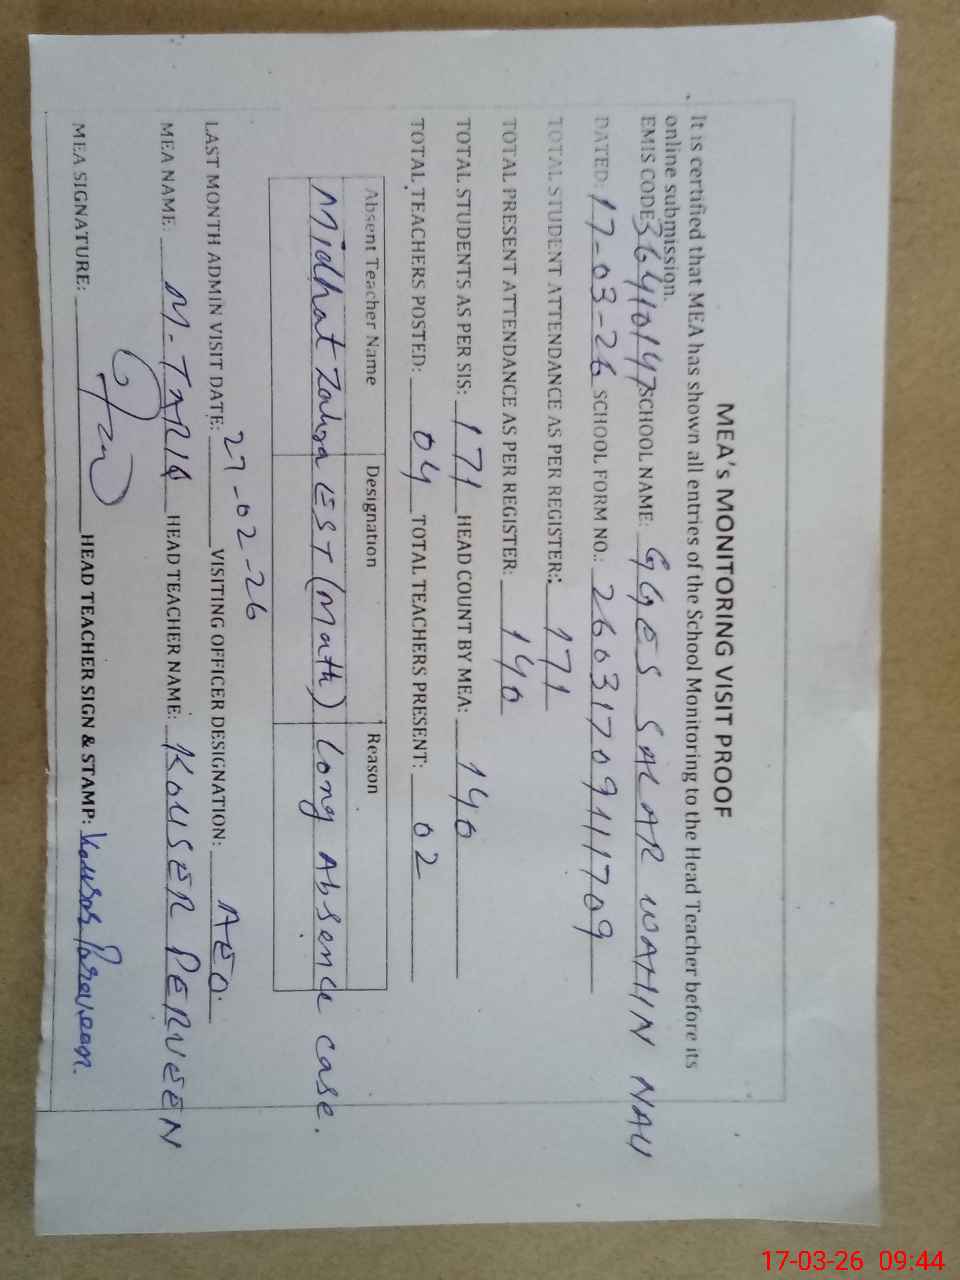 MEA's MONITORING VISIT PROOF
It is certified that MEA has shown all entries of the School Monitoring to the Head Teacher before its
online submission.
EMIS CODE 36410147 SCHOOL NAME: GGES SALAR WAHIN NAU
DATED: 17-03-26 SCHOOL FORM NO.: 26031709411709
TOTAL STUDENT ATTENDANCE AS PER REGISTER: 171
TOTAL PRESENT ATTENDANCE AS PER REGISTER: 140
TOTAL STUDENTS AS PER SIS: 171 HEAD COUNT BY MEA: 140
TOTAL TEACHERS POSTED: 04 TOTAL TEACHERS PRESENT: 02
Absent Teacher Name Designation Reason
Midhat Zahra EST (Math) Long Absence case.
LAST MONTH ADMIN VISIT DATE: 27-02-26 VISITING OFFICER DESIGNATION: AEO.
MEA NAME: M-TARIQ HEAD TEACHER NAME: KOUSER PERVEEN
MEA SIGNATURE: HEAD TEACHER SIGN & STAMP: Kousar Parveen.
17-03-26 09:44